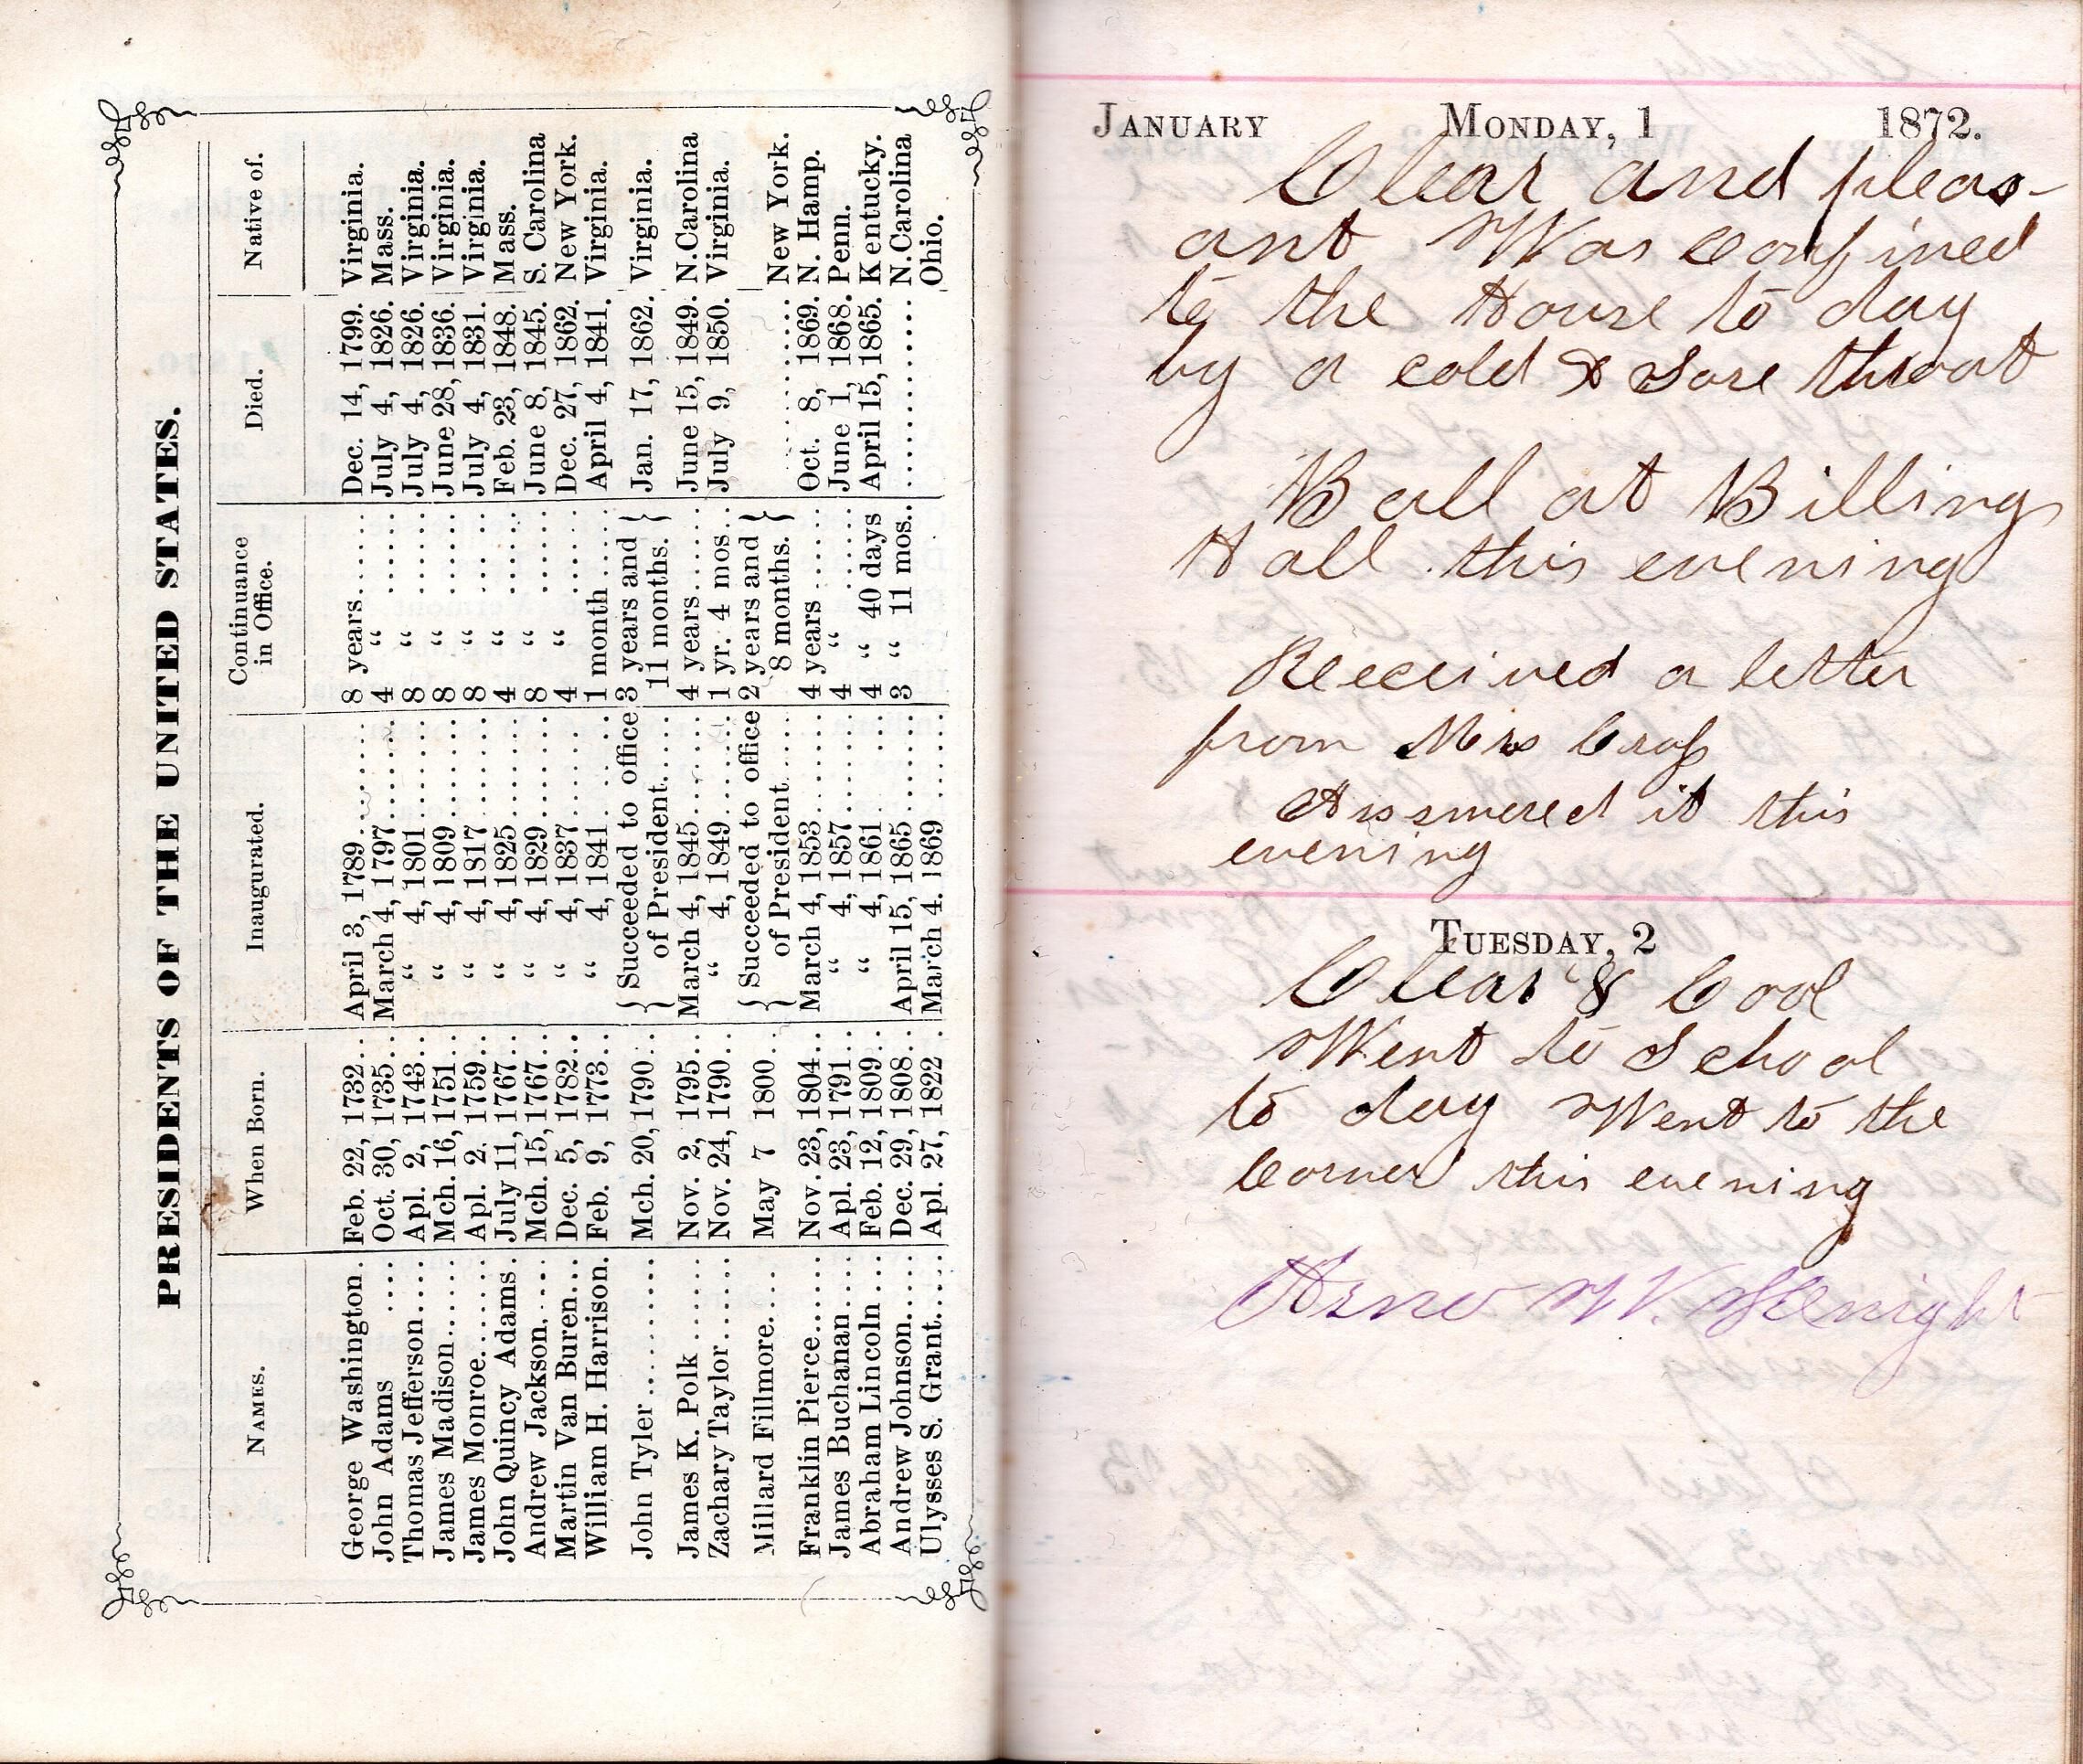 PRESIDENTS OF THE UNITED STATES.
NAMES. When Born. Inaugurated. Continuance in Office. Died. Native of.
George Washington. Feb. 22, 1732... April 3, 1789........ 8 years....... Dec. 14, 1799. Virginia.
John Adams .... Oct. 30, 1735.. March 4, 1797....... 4 “ ....... July 4, 1826. Mass.
Thomas Jefferson..... Apl. 2, 1743... “ 4, 1801....... 8 “ ....... July 4, 1826. Virginia.
James Madison....... Mch. 16, 1751.. “ 4, 1809....... 8 “ ....... June 28, 1836. Virginia.
James Monroe........ Apl. 2, 1759.. “ 4, 1817....... 8 “ ... .. July 4, 1831. Virginia.
John Quincy Adams. July 11, 1767.. “ 4, 1825....... 4 “ ....... Feb. 23, 1848. Mass.
Andrew Jackson..... Mch. 15, 1767... “ 4, 1829....... 8 “ ....... June 8, 1845. S. Carolina
Martin Van Buren... Dec. 5, 1782.. “ 4, 1837....... 4 “ ....... Dec. 27, 1862. New York.
William H. Harrison. Feb. 9, 1773... “ 4, 1841 .. .. . 1 month ..... April 4, 1841. Virginia.
John Tyler .......... Mch. 20, 1790 .. { Succeeded to office of President..... 3 years and 11 months. } Jan. 17, 1862. Virginia.
James K. Polk ....... Nov. 2, 1795... March 4, 1845...... 4 years ...... June 15, 1849. N.Carolina
Zachary Taylor...... Nov. 24, 1790 .. “ 4, 1849....... 1 yr. 4 mos... July 9, 1850. Virginia.
Millard Fillmore..... May 7 1800 .. { Succeeded to office of President..... 2 years and 8 months. } ........... New York.
Franklin Pierce...... Nov. 23, 1804.. March 4, 1853...... 4 years ...... Oct. 8, 1869. N. Hamp.
James Buchanan .... Apl. 23, 1791... “ 4, 1857....... 4 “ ...... June 1, 1868. Penn.
Abraham Lincoln .... Feb. 12, 1809.. “ 4, 1861 ... .. 4 “ 40 days April 15, 1865. Kentucky.
Andrew Johnson..... Dec. 29, 1808.. April 15, 1865....... 3 “ 11 mos.. ............ N.Carolina
Ulysses S. Grant..... Apl. 27, 1822 .. March 4. 1869 ....... Ohio.
JANUARY MONDAY, 1 1872.
Clear and pleas-
ant Was confined
to the House to day
by a cold & Sore throat
Ball at Billings
Hall this evening
Received a letter
from Mrs Cross
Answered it this
evening
TUESDAY, 2
Clear & Cool
Went to School
to day Went to the
Corner this evening
W. Knight